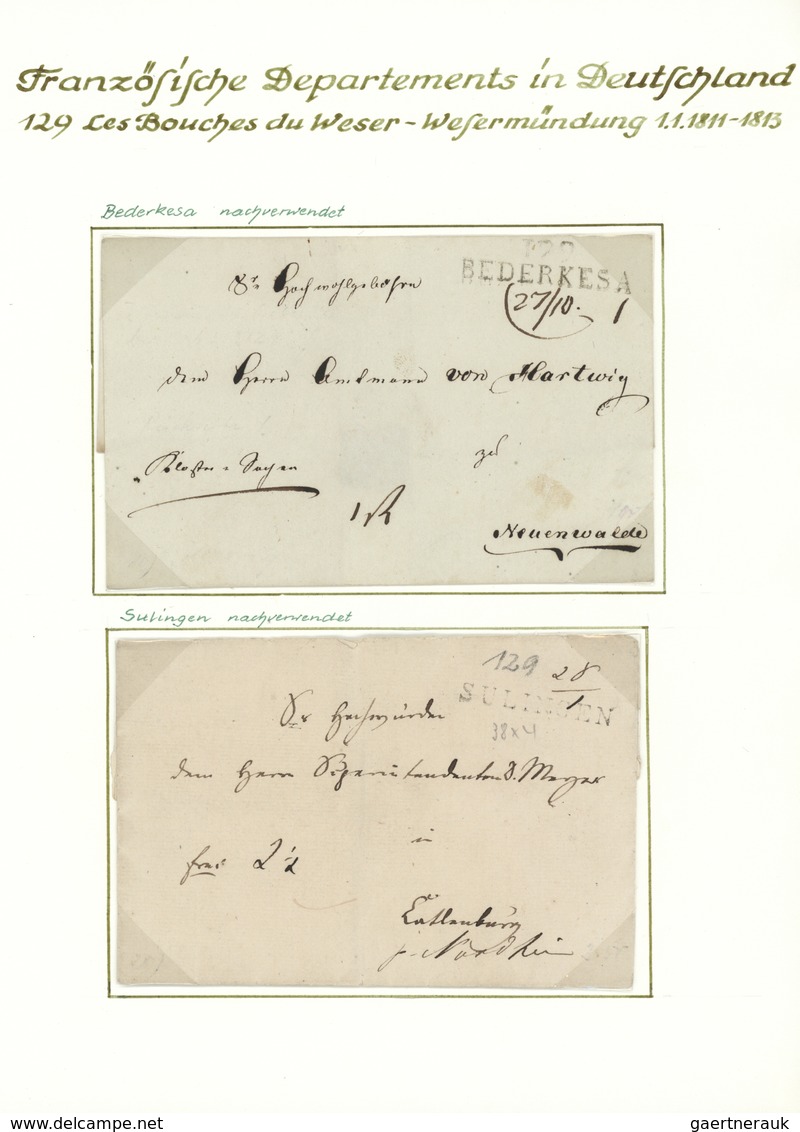 Französische Departements in Deutschland
129 Les Bouches du Weser - Wesermündung 1.1.1811-1813
Bederkesa nachverwendet
129
BEDERKESA
Sr Hochwohlgebohrn
27/10. 1
dem Herrn Amtmann von Hartwig
zu
Kloster-Sachen
Neuenwalde
Sulingen nachverwendet
129
28/1
SULINGEN
38x4
Sr Hochwürden
dem Herrn Superintendenten D. Meyer
in
frei 2 1/2
Catlenburg
p. Nordheim
www.delcampe.net
gaertnerauk